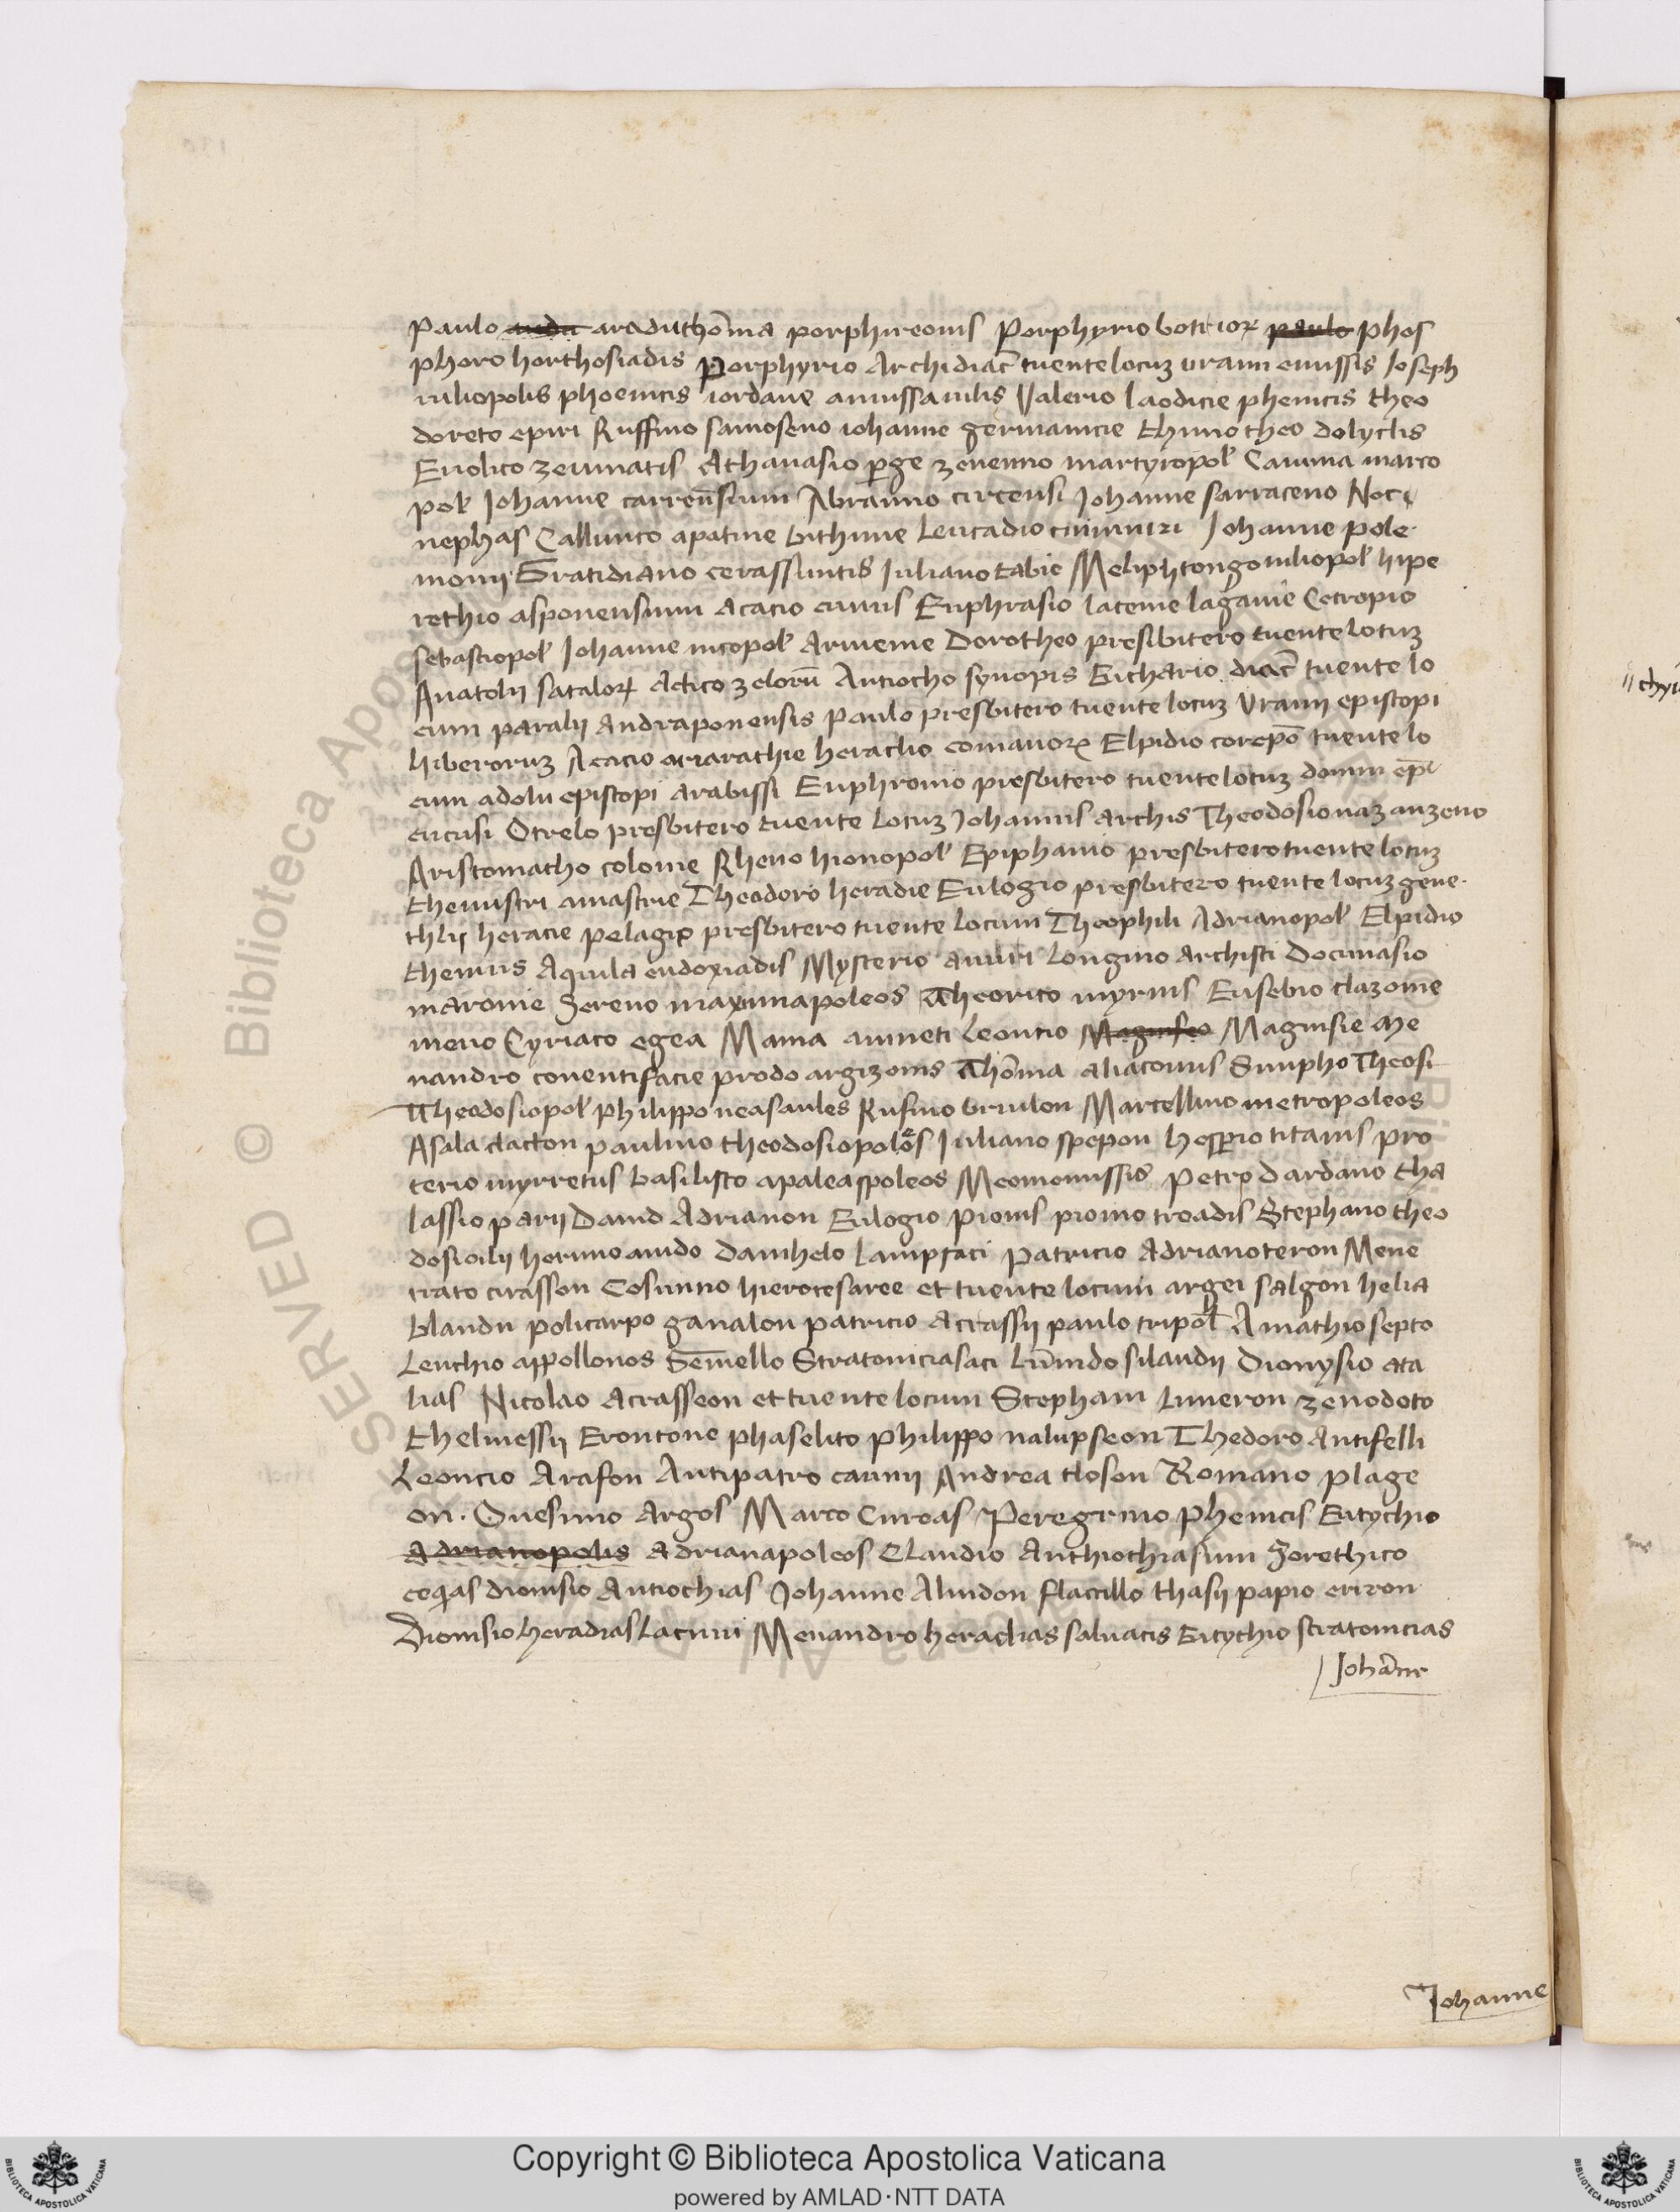 Paulo aradu thōma porphireonis Porphyrio botrioꝝ paulo phos
phoro horthosiadis Porphyrio Archidiac̄ tuente locuʒ uranii emissis Joseph
iuliopolis phoenicis iordane amissanilis Valerio laodicie phenicis theo
doreto epiri Ruffino samoseno iohanne germanicie thimotheo dolyclis
Euolico zeumatis Athanasio p̱ge zenenno martyropol̄ Caiuma marco
pol̄ Johanne carren̄sium Abramno circensi Johanne sarraceno Noci
nephas Callinico apatine bithinie Leucadio Johanne Pole
monii Gratidiano cerassuntis Juliano tabie Meliphtongo iuliopol̄ hipe
rethio asponensium Acacio cimis Euphrasio laceme laganie Cecropio
sebastiopol̄ Johanne nicopol̄ Armenie Dorotheo presibitero tuente locuʒ
Anatolii sataloꝝ Actico zelorū Antiocho synopis Eichario diac̄ tuente lo
cum paralii andraponensis Paulo presbitero tuente locuʒ Uranii episcopi
hiberorum Acacio ariarathie heraclio comanoꝝ Elpidio corep̄o tuente lo
cum adolii episcopi arabissi Euphronio presbitero tuente locuʒ domni ep̄i
cucusi Otrelo presbitero tuente locuʒ Johannis archis Theodosio naʒanʒeno
Aristomacho colonie Rheno hionopol̄ Epiphanio presbitero tuente locuʒ
themistri amastrie Theodoro heraclie Eulogio presbitero tuente locuʒ gene
thlii heracie pelagio presbitero tuente locum Theophili Adrianopol̄ Elpidio
themis Aquila eudoxiadis Mysterio amiri Longino Archisti Docimasio
maronie Sereno maximapoleos Theorito myrinis Eusebio clazome
meno Cyriaco egea Mama anineti leontio Maginseo Maginsie Me
nandro conentifacie prodo argizonis Thōma aliaconis Simpho Theosi
Theodosiopol̄ philippo neasaules Rufino briulon Marcellino metropoleos
Asala clacton paulino theodosiopoleos Juliano spepon hesperio titanis pro
terio myrretus basilisco apaleaspoleos Meomonissis Petro dardano tha
lassio parii Dauid Adrianon Eulogio pionis pionio troadis Stephano theo
dosioilii hermo anido danihelo lampsaci patricio Adrianoteron Mene
crato cirasson Cosinnio hierocesaree et tuente locum argei salgon helia
blandii policarpo ganalon patricio acrassii paulo tripol̄ Amachio septo
Leuchio appollonos Gemello Stratonicias aci silandii Dionysio ata
lias Nicolao Acrasseon et tuente locum Stephani limeron zenodoto
thelmessii Erontone phaselito philippo nalupseon Thedoro Antifelli
Leoncio Arafon Antipatro caunii Andrea closon Romano Plage
on. Onesimo Argos Marco Cureas Peregrino phenicis Eutychio
Adrianopolis Adrianapoleos Claudio Anthiochiasum Jorethico
ceqas dionisio Antiochias Johanne Alindon flaccillo thasii papio eriron
Dionisio heraclias lacimi Menandro heraclias saluacis Eitychio stratonicias
Johān̄e
Johanne